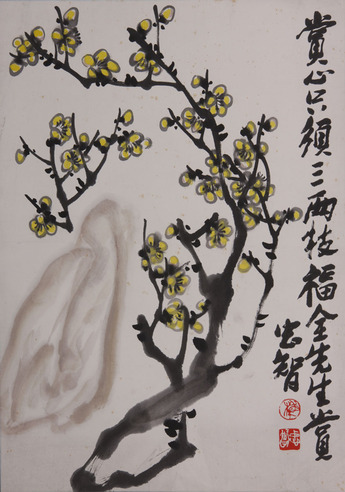 賞心只須三兩枝福全先生賞
忠智